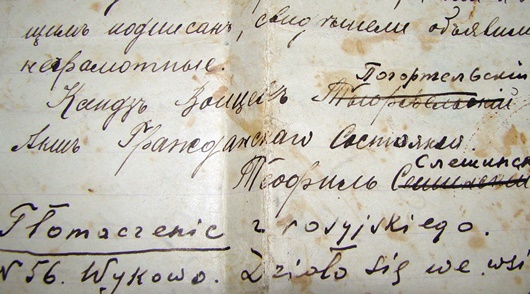 щимъ подписанъ, свидѣтели объявили
неграмотные.
Погортельскій
Ксендзъ Войцехъ
Актъ Гражданскаго Состоянія
Слешинск
Теофиль
Tłomaczenie z rosyjskiego.
N 56. Wykowo. Działo się we wsi